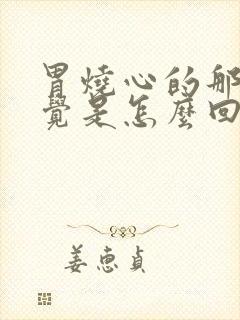 胃燒心的那
覺是怎麼回
姜惠貞